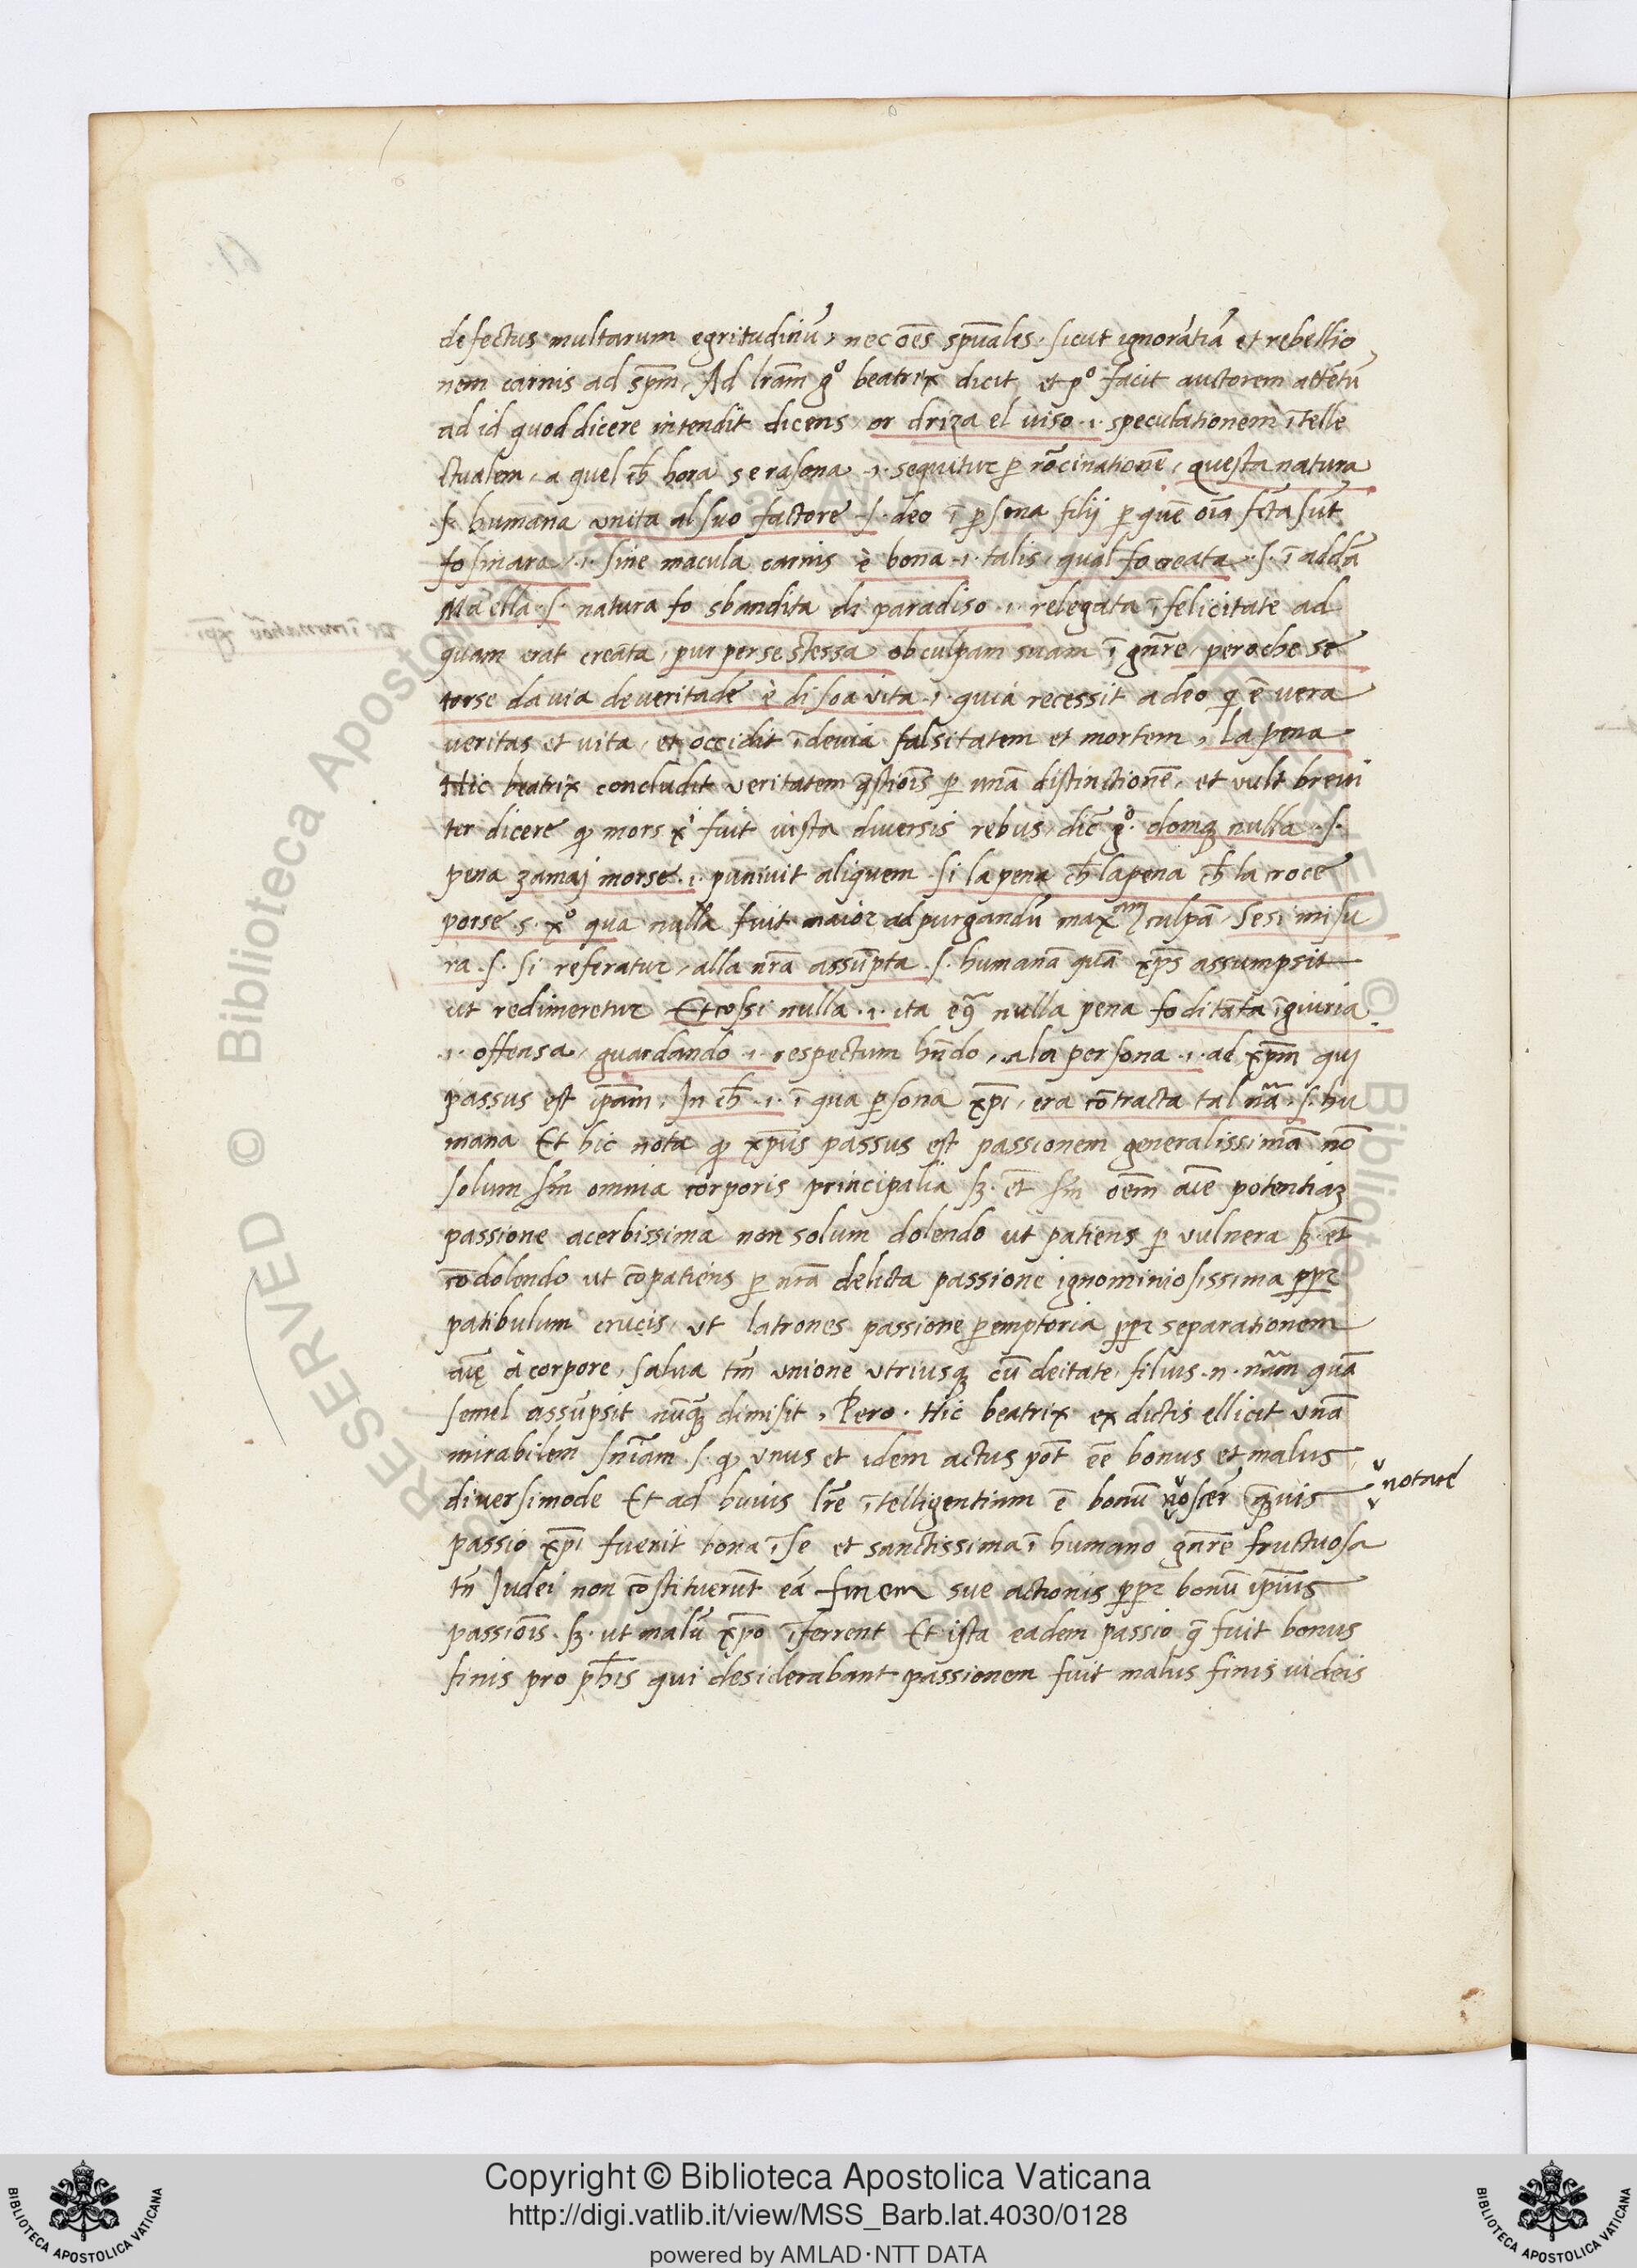 defectus multarum egritudinũ, nec oẽs spũales. sicut ignorãtiã et rebellio
nem carnis ad spm̃. Ad lrãm gͦ beatrix dicit, et pͦ facit auctorem attẽtũ
ad id quod dicere intendit dicens or driza el viso .i. speculationem ĩtelle
ctualem, a quel ch̃ hora se rasona .i. sequitur ꝑ rõcinationẽ, questa natura
s. humana unita al suo factore .s. deo ĩ ꝑsona filij ꝑ quẽ oĩa fctã sũt
fo sincara .i. sine macula carnis è bona .i. talis, qual fo creata .s. ĩ addã
Ma ella .s. natura fo sbandita di paradiso .i. relegata ĩ felicitate ad
quam erat creata, pur per se stessa, ob culpam suam ĩ gñre, peroche se
torse da via de veritade è di soa vita .i. quia recessit a deo q ẽ vera
veritas et vita, et occidit ĩ devia falsitatem et mortem, la pena
Hic beatrix concludit veritatem q̃stiõis ꝑ unã distinctionẽ, et vult brevi
ter dicere ꝙ mors xi fuit iusta diversis rebus, dic̃ gͦ. domqꝫ nulla .s.
pena zamaj morse .i. punivit aliquem si la pena ch̃ la pena ch̃ la croce
porse .s. xͦ qua nulla fuit maior ad purgandũ maxam culpã, se si misu
ra .s. si referatur, alla nrã assũpta .s. humanã quã xp̃s assumpsit
ut redimeretur Et cossi nulla .i. ita eq̃ nulla pena fo di tãta ĩgiuria
.i. offensa, guardando .i. respectum hñdo, a la persona .i. ad xpm̃ quj
passus est ip̃am, In ch̃ .i. ĩ qua ꝑsona xp̃i, era cõtracta tal nã̃ .s. hu
mana Et hic nota ꝙ xpũs passus est passionem generalissimã nõ
solum sm̃ omnia corporis principalia sꝫ. et̃ sm̃ oẽm aĩe potentiaꝫ
passione acerbissima non solum dolendo ut patiens ꝑ vulnera sꝫ. et̃
cõdolendo ut cõpatiens ꝑ nrã delicta passione ignominiosissima ppr̃
patibulum crucis, ut latrones passione ꝑemptoria ppr̃ separationem
aĩę à corpore, salva tm̃ unione utriusqꝫ cũ deitate, filius .n. nãm quã
semel assũpsit nũqꝫ dimisit, Pero. Hic beatrix ex dictis ellicit unã
mirabilem snĩam .s. ꝙ unus et idem actus põt eẽ bonus et malus
diversimode Et ad huius lrẽ ĩtelligentiam ẽ bonũ noscer q̃mvis
notare
passio xp̃i fuerit bona ĩ se et sanctissima ĩ humano gñre fructuosa
tñ Judei non cõstituerũt eã finem sue actionis ppr̃ bonũ ip̃ius
passiõis. sꝫ. ut malũ xp̃o ĩferrent Et ista eadem passio q̃ fuit bonus
finis pro ph̃is qui desiderabant passionem fuit malus finis iudeis
Copyright © Biblioteca Apostolica Vaticana
http://digi.vatlib.it/view/MSS_Barb.lat.4030/0128
powered by AMLAD·NTT DATA
BIBLIOTECA APOSTOLICA VATICANA
BIBLIOTECA APOSTOLICA VATICANA